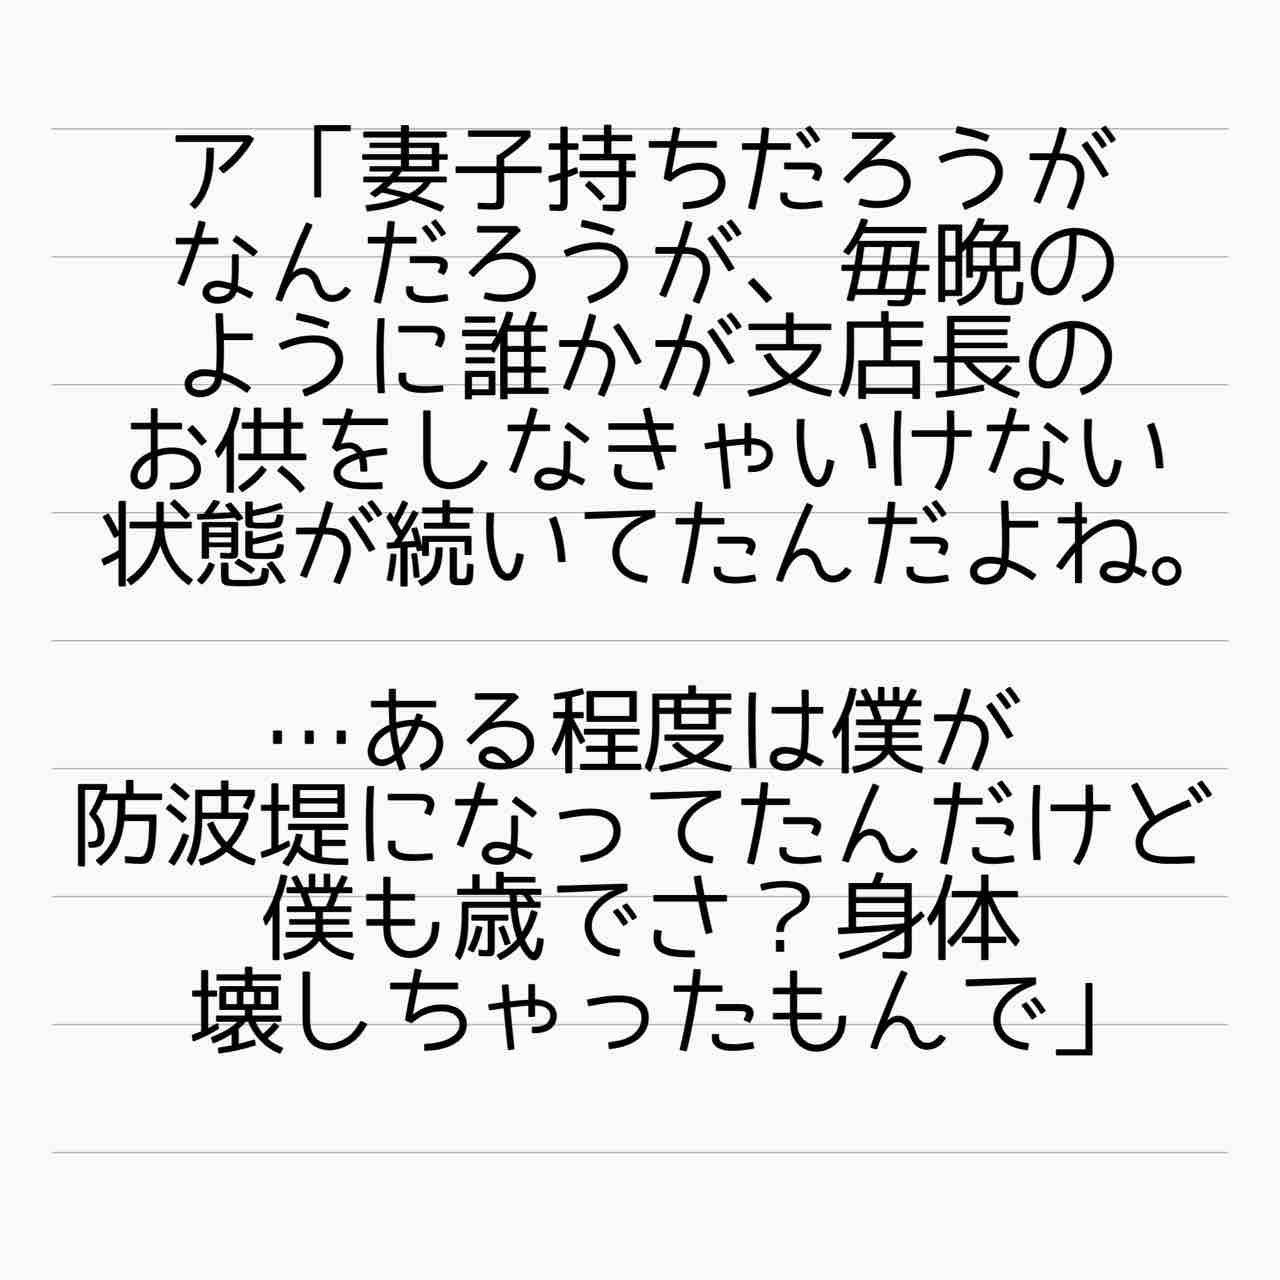 ア「妻子持ちだろうが
なんだろうが、毎晩の
ように誰かが支店長の
お供をしなきゃいけない
状態が続いてたんだよね。
…ある程度は僕が
防波堤になってたんだけど
僕も歳でさ？身体
壊しちゃったもんで」